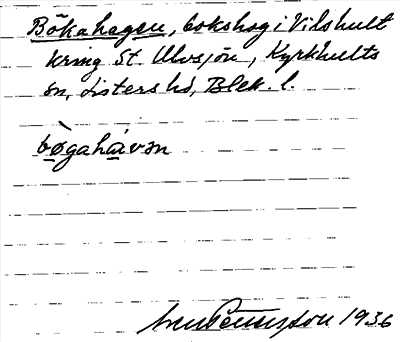 Bökahagen, bokskog i Vilshult
kring St. Ulvsjön, Kyrkhults
sn, Listers hd, Blek. l.
bøgahávən
Pettersson 1936